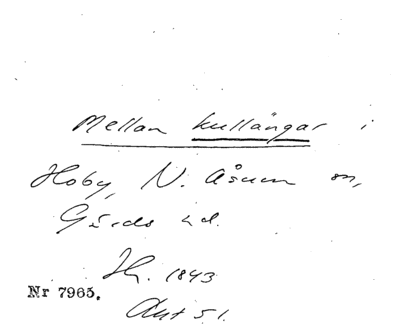 Mellan kullängar i
Hoby, N. Åsum sn,
Gärds hd.
Hy. 1843
Nr 7965.
Akt 51.